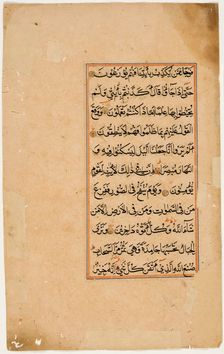 فوجا ممن يكذب بآياتنا فهم يوزعون
حتى اذا جاؤ قال اكذبتم بآياتي ولم
تحيطوا بها علما اماذا كنتم تعملون ووقع
القول عليهم بما ظلموا فهم لا ينطقون
الم يروا انا جعلنا الليل ليسكنوا فيه و
النهار مبصرا ان في ذلك لآيات لقوم
يؤمنون ويوم ينفخ في الصور ففزع
من في السموات ومن في الارض الا من
شاء الله وكل اتوه داخرين وترى
الجبال تحسبها جامدة وهي تمر مر السحاب
صنع الله الذي اتقن كل شيء انه خبير